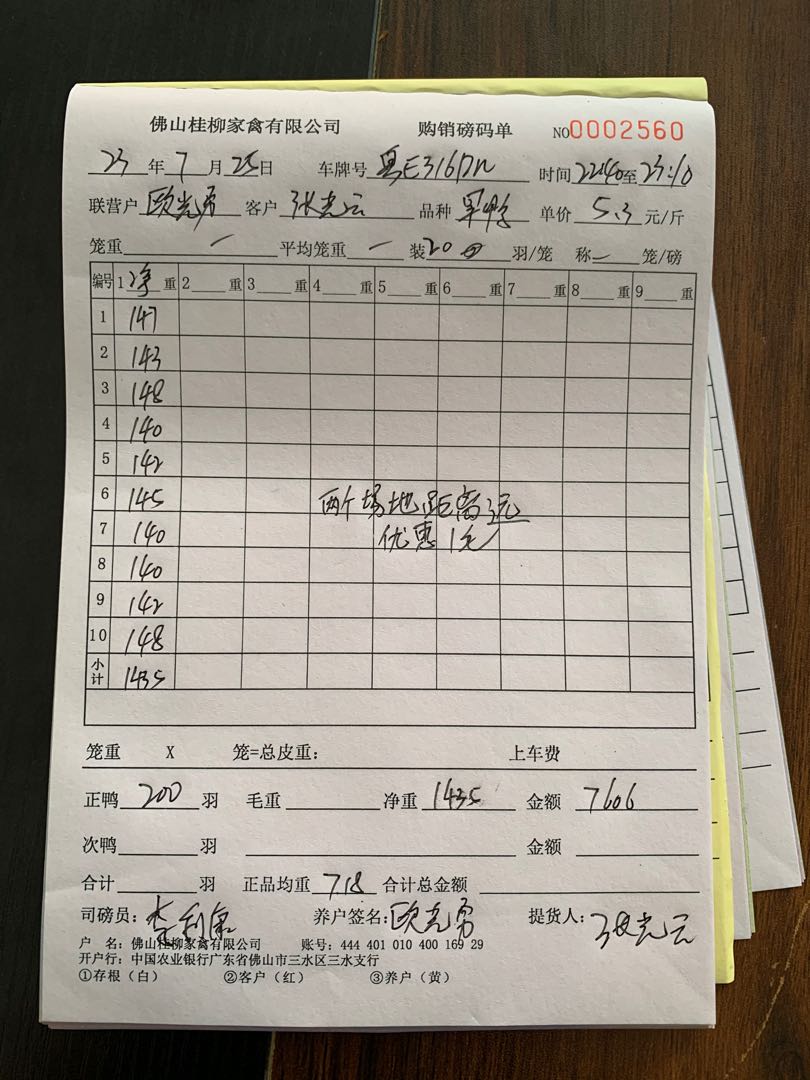 佛山桂柳家禽有限公司 购销磅码单 NO0002560
23年7月25日 车牌号 粤E316 时间22:40至23:10
联营户 欧光勇 客户 张光云 品种 单价 5.3 元/斤
笼重 一 平均笼重 一 装20 羽/笼 称一 笼/磅
编号 1净重 2 重 3 重 4 重 5 重 6 重 7 重 8 重 9 重
1 147
2 143
3 148
4 140
5 142
6 145 两个场地距离远
7 140 优惠1毛
8 140
9 142
10 148
小计 1435
笼重 X 笼=总皮重: 上车费
正鸭 200 羽 毛重 净重 1435 金额 7606
次鸭 羽 金额
合计 羽 正品均重 7.18 合计总金额
司磅员: 李利 养户签名: 欧光勇 提货人: 张光云
户 名: 佛山桂柳家禽有限公司 账号: 444 401 010 400 169 29
开户行: 中国农业银行广东省佛山市三水区三水支行
①存根（白） ②客户（红） ③养户（黄）